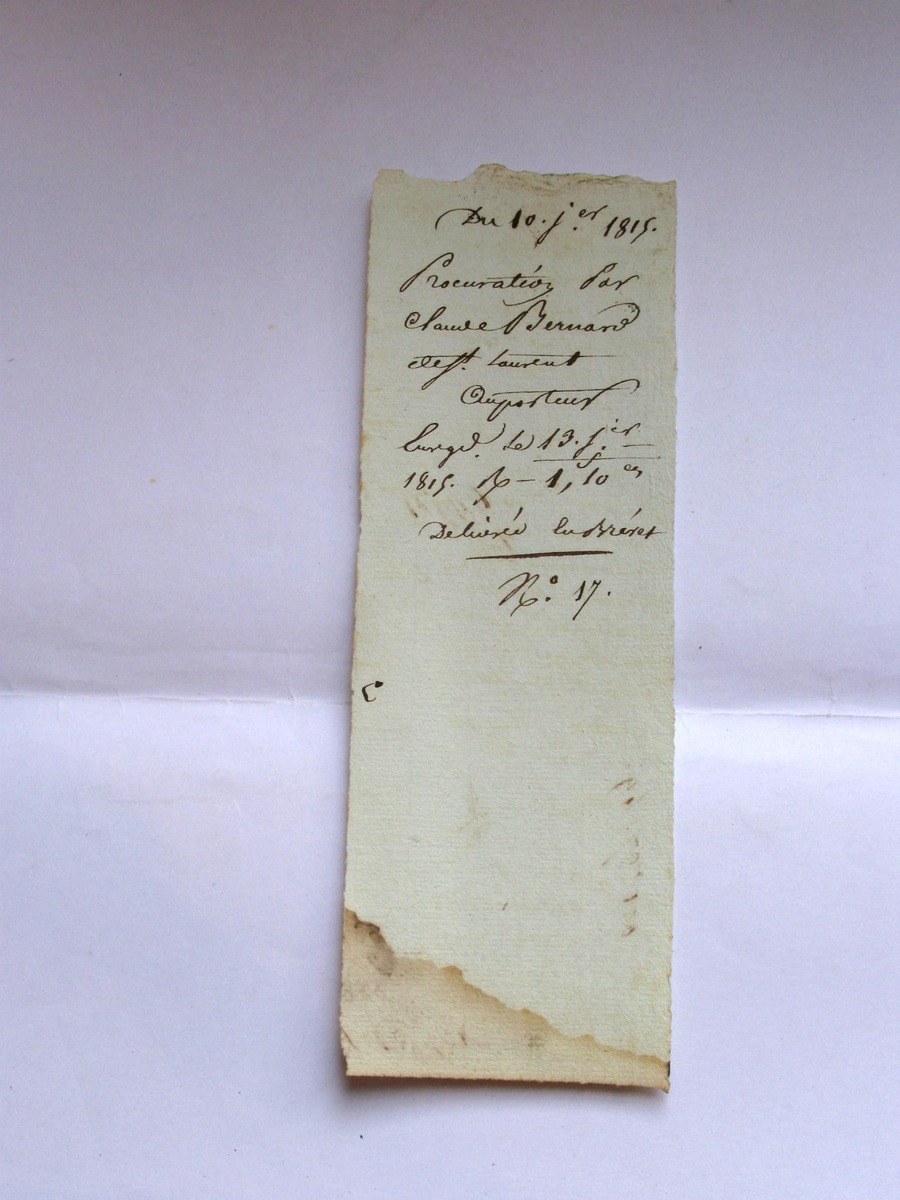 Du 10. j.er 1815.
Procuration Par
Claude Bernard
de st. Laurent
Au porteur
Enregé. Le 13. j.er
1815. R – 1, 10 ces
Delivrée En Brévet
N.o 17.